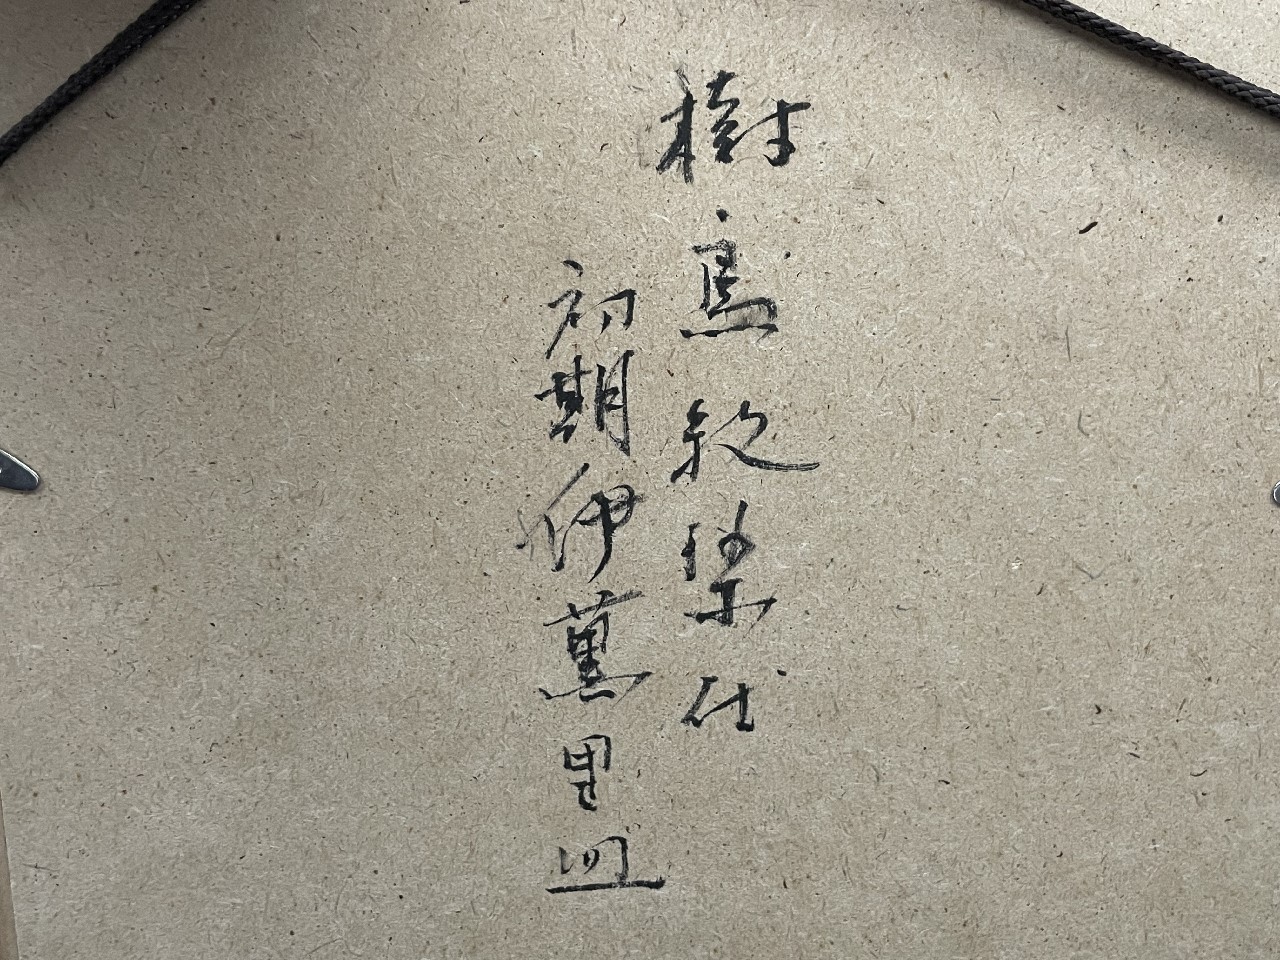 樹鳥紋染付
初期伊萬里皿